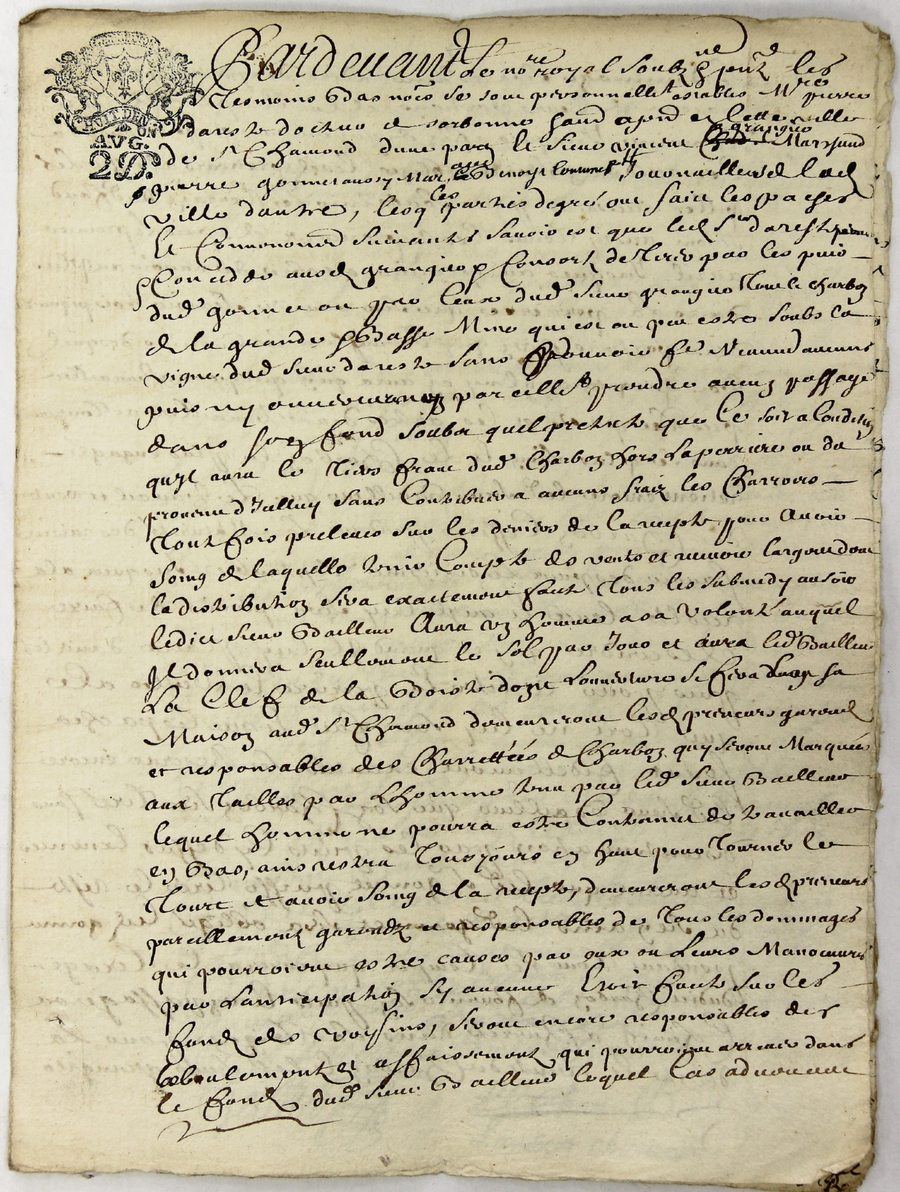 HUIT DEN
ON
AVG.
2 D.
Pardevant le no.re royal soubz.né p.nt les
Tesmoins bas nom.s se sont personnellem.t establis M.re pierre
dareste docteur de sorbonne habitant en cette ville
de S.t Chamond d'une part le sieur vincent grangier Marchand
pierre gonnet aussy Mar. benoyt
ville d'autre, lesq.les parties de gré ont fait les paches
et Conventions suivants savoir est que led. S.r dareste
Concede aud. grangier Consort de Tirer par les puis
dud. gonnet ou par Ceux dud. sieur grangier Tout le charbon
de la grande Basse Mine qui est ou peu estre soubs la
vigne dud. sieur dareste sans pouvoir faire aucuns
puis ny ouvertures pareillem.t prendre aucun passage
dans son fond soubz quel pretexte que ce soit a Condition
qu'yl aura le Tiers franc dud. Charbon hors la perriere ou du
provenu d'Icelluy sans Contribuer a aucuns frais les Charrois
Toutefois preleues sur les deniers de la recepte pour avoir
soing de laquelle tenir Compte des ventes et retirer l'argent dont
la distribution sera exactement faite Tous les samedy au soir
ledict sieur Bailleur Aura un homme a sa volonté auquel
Il donnera seullement le sol par Jour et aura led. Bailleur
La Clef de la Boiste dont l'ouverture se fera dans sa
Maison aud. S.t Chamond demeureront lesd. preneurs garends
et responsables des Charrettées de Charbon quy seront Marquées
aux Tailles par L'homme tenu par led. sieur Bailleur
lequel homme ne pourra estre Contraint de travailler
en Bas, ains restra Tousjours en haut pour Tourner le
Tour et avoir soing de la recepte, demeureront lesd. preneurs
pareillement garends et responsables de Tous les dommages
qui pourroient estre causes par eux ou Leurs Manoeuvres
par L'anticipation sy aucune Etoit faite sur les
fonds des voysins, seront encore responsables des
eboulement et affaissement qui pourroient arriver dans
le fond dud. sieur Bailleur lequel Cas advenant